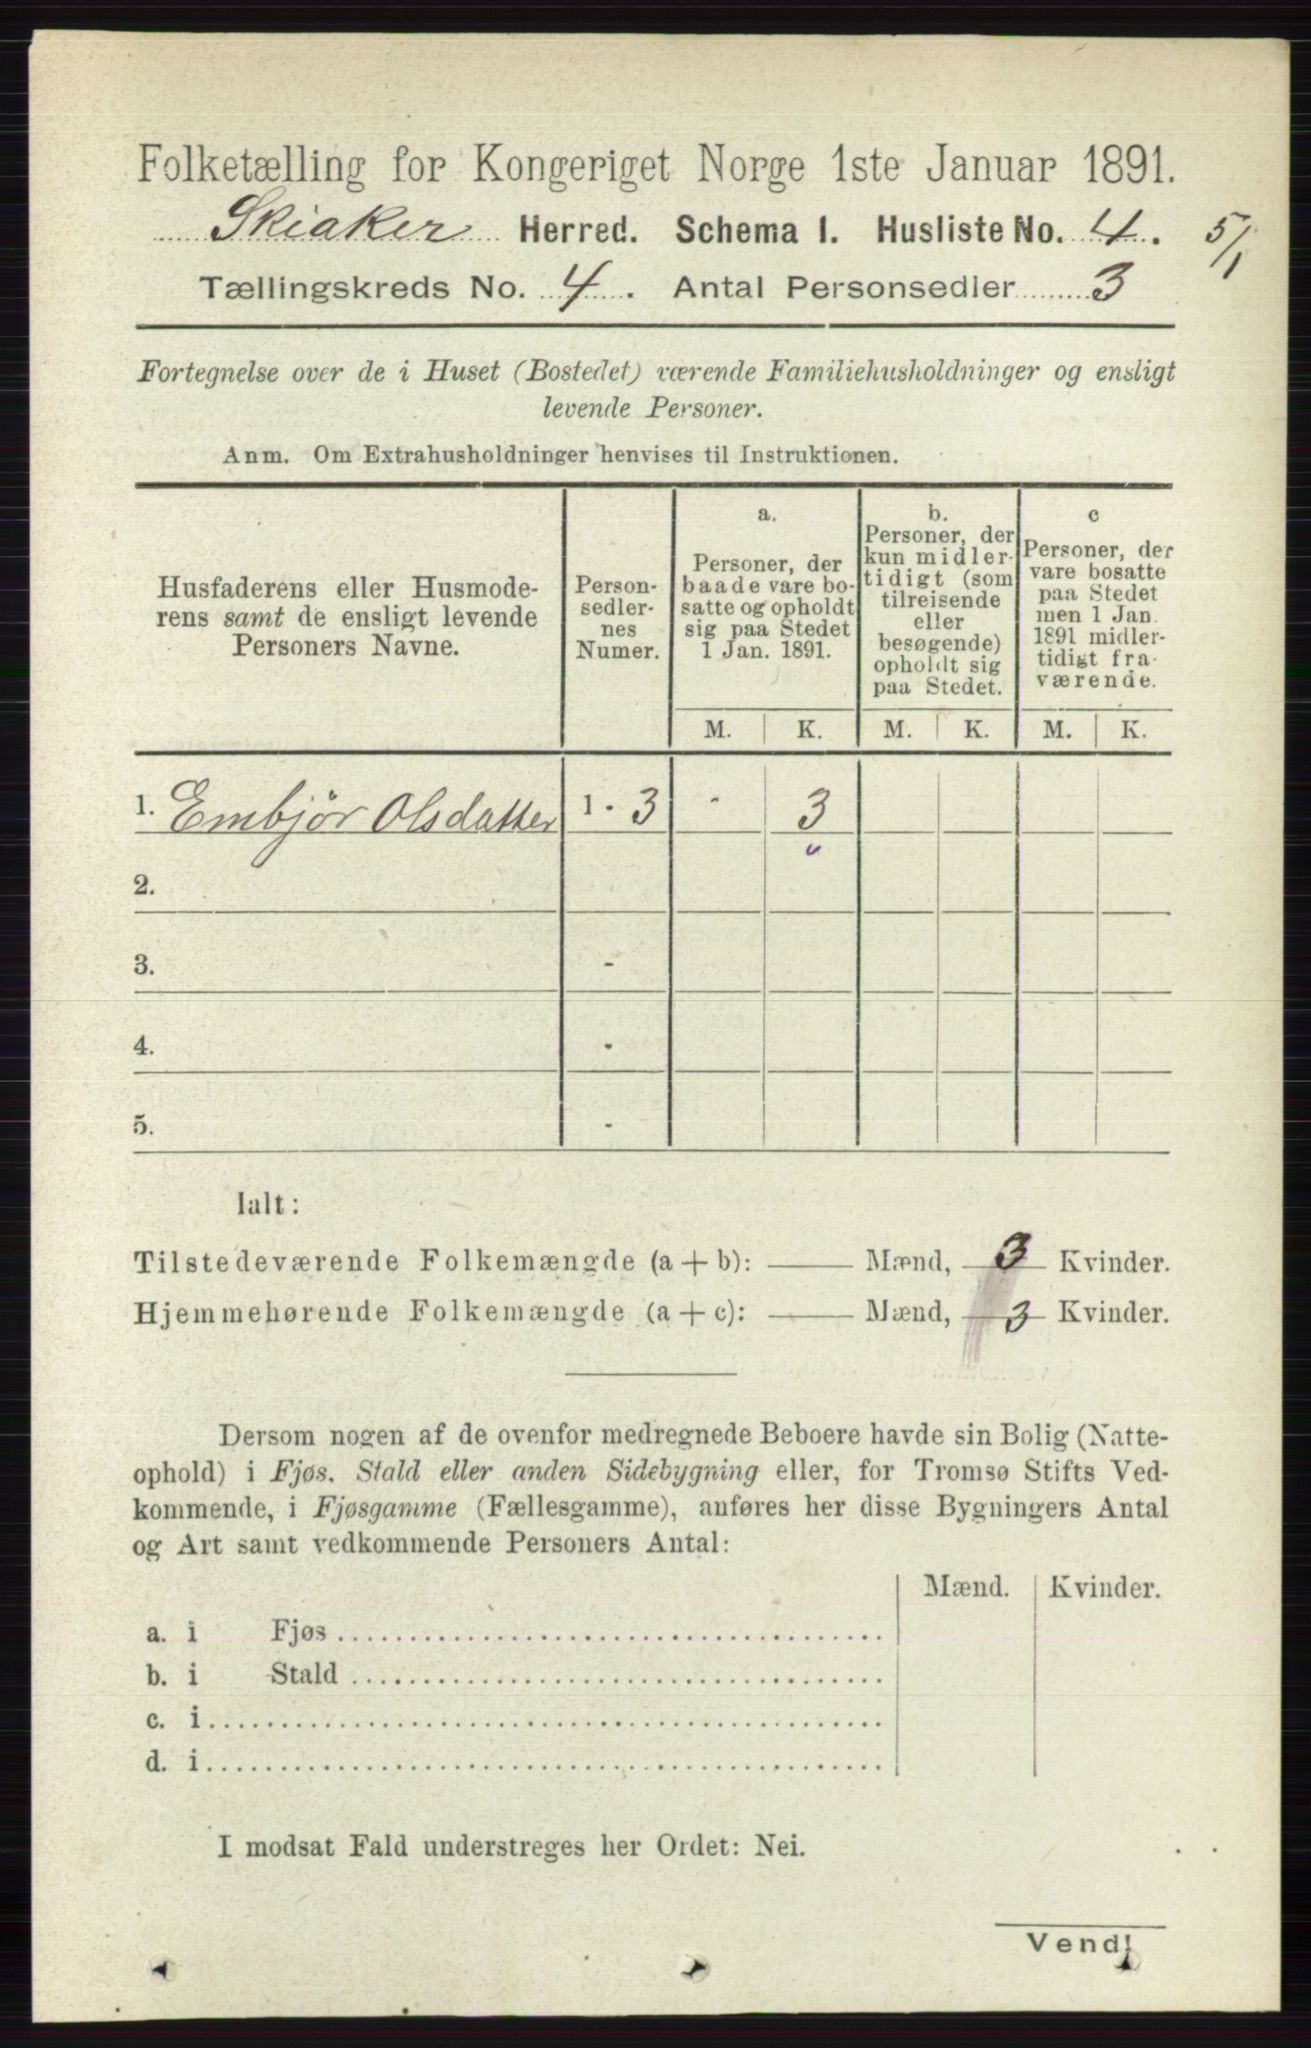 Folketælling for Kongeriget Norge 1ste Januar 1891.
Skiaker Herred. Schema 1. Husliste No. 4. 5/1
Tællingskreds No. 4. Antal Personsedler 3
Fortegnelse over de i Huset (Bostedet) værende Familiehusholdninger og ensligt
levende Personer.
Anm. Om Extrahusholdninger henvises til Instruktionen.
Husfaderens eller Husmode-
rens samt de ensligt levende
Personers Navne.
Person-
sedler-
nes
Numer.
a.
Personer, der
baade vare bo-
satte og opholdt
sig paa Stedet
1 Jan. 1891.
b.
Personer, der
kun midler-
tidigt (som
tilreisende
eller
besøgende)
opholdt sig
paa Stedet.
c
Personer, der
vare bosatte
paa Stedet
men 1 Jan.
1891 midler-
tidigt fra-
værende.
M. K. M. K. M. K.
1. Embjör Olsdatter 1 - 3 - 3
2.
3. -
4. -
5. -
Ialt:
Tilstedeværende Folkemængde (a + b): Mænd, 3 Kvinder.
Hjemmehørende Folkemængde (a + c): Mænd, 3 Kvinder.
Dersom nogen af de ovenfor medregnede Beboere havde sin Bolig (Natte-
ophold) i Fjøs. Stald eller anden Sidebygning eller, for Tromsø Stifts Ved-
kommende, i Fjøsgamme (Fællesgamme), anføres her disse Bygningers Antal
og Art samt vedkommende Personers Antal:
Mænd. Kvinder.
a. i Fjøs
b. i Stald
c. i
d. i
I modsat Fald understreges her Ordet: Nei.
Vend!